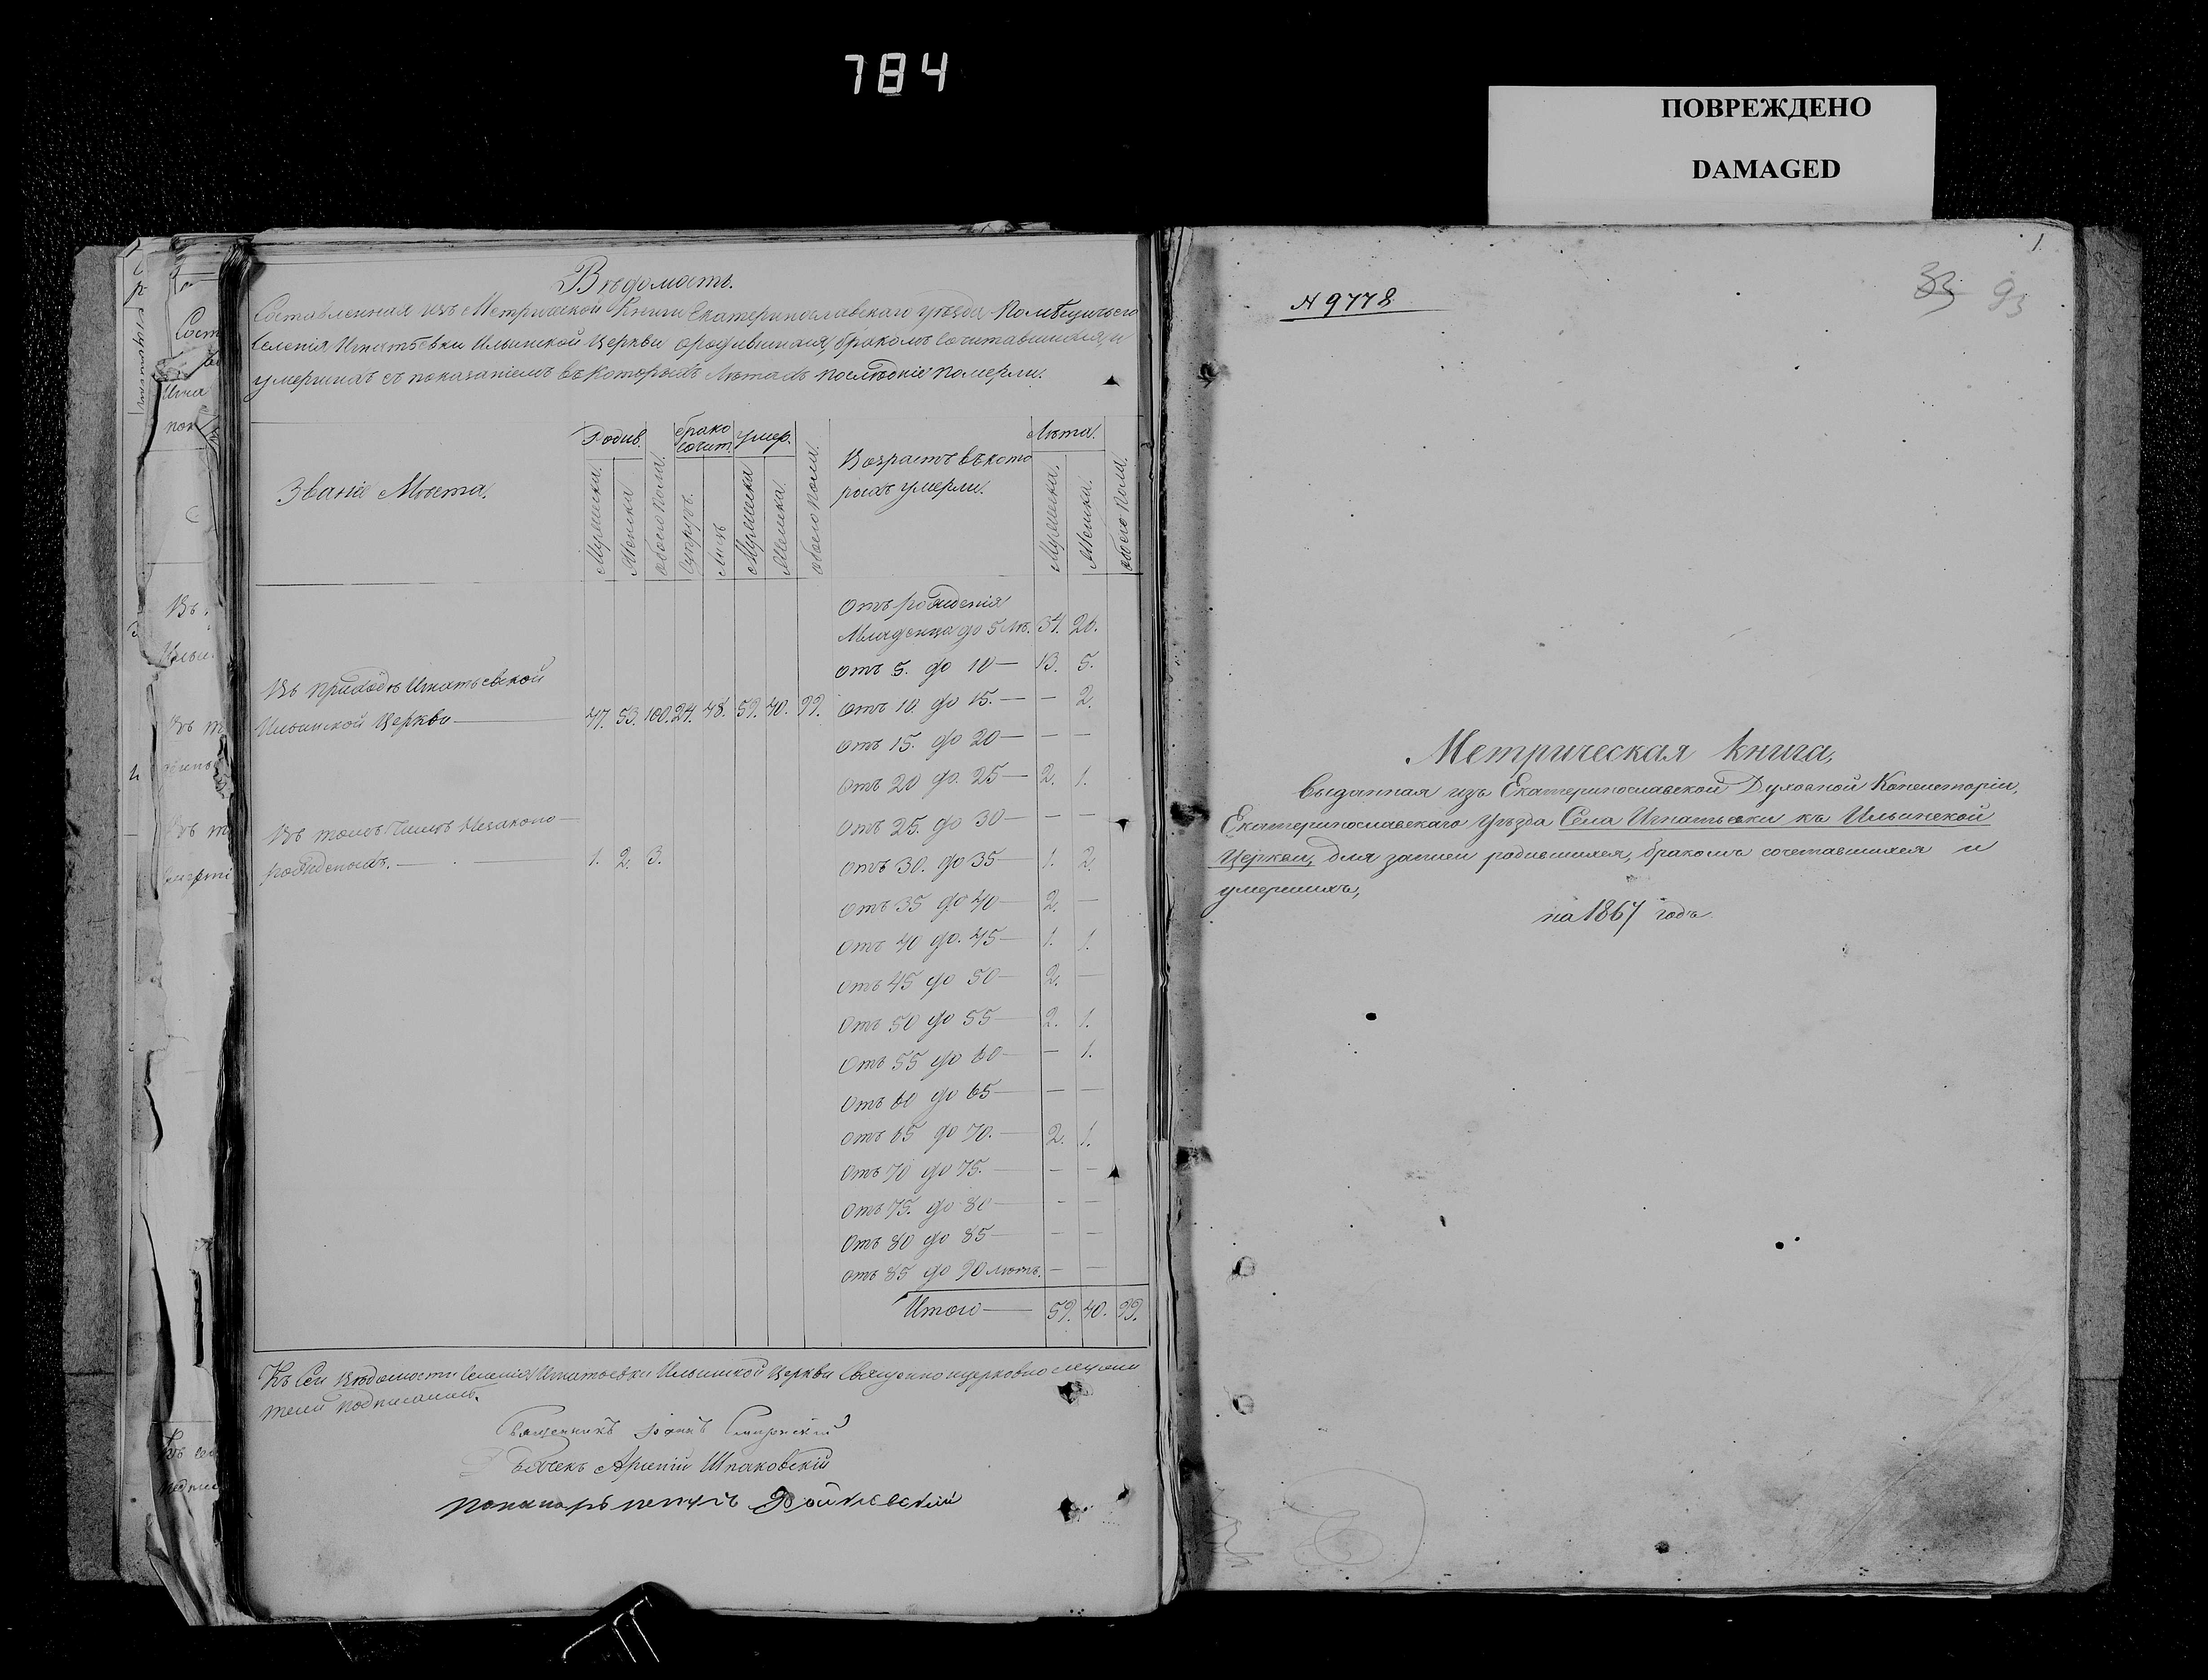 784
ПОВРЕЖДЕНО
DAMAGED
Вѣдомость.
Составленная изъ Метрической Книги Екатеринославскаго уѣзда Помѣщичьего
селенія Игнатѣевки Ильинской Церкви о родившихся, бракомъ сочитавшихся, и
умершихъ съ показаніемъ въ которыхъ лѣтахъ послѣдніе померли.
Званіе Мѣста.
Родив.
Мужеска.
Женска
обоего пола.
брако
сочит.
супруж.
лицъ
умер.
Мужеска
Женска.
обоего пола.
Возрастъ въ кото
рыхъ умерли.
Лѣта.
Мужеска.
Женска.
обоего пола.
Въ приходѣ Игнатьевской
Ильинской Церкви — 47. 53. 100. 24. 48. 59. 40. 99.
Въ томъ числѣ незаконо
рожденныхъ. — 1. 2. 3.
Отъ рожденія
Младенца до 5 лѣ. 34. 26.
отъ 5. до 10 — 13. 5.
отъ 10. до 15. — — 2.
отъ 15. до 20 — — —
отъ 20 до. 25 — 2. 1.
отъ 25. до 30 — — —
отъ 30. до 35 — 1. 2.
отъ 35 до 40 — 2. —
отъ 40 до. 45 — 1. 1.
отъ 45 до 50 — 2. —
отъ 50 до 55 — 2. 1.
отъ 55 до 60 — — 1.
отъ 60 до 65 — — —
отъ 65 до 70. — 2. 1.
отъ 70 до 75. — — —
отъ 75. до 80 — — —
отъ 80 до 85 — — —
отъ 85 до 90 лѣтъ. — —
Итого — 59. 40. 99.
Къ сей вѣдомости селенія Игнатьевки Ильинской Церкви священноцерковнослужи
тели подписались.
Священникъ Іоаннъ
Дьячекъ Арсеній Шпаковскій
пономарь
1.
33 93
N 9778
Метрическая книга,
выданная изъ Екатеринославской Духовной Консисторіи,
Екатеринославскаго Уѣзда Села Игнатьевки къ Ильинской
Церкви, для записи родившихся, бракомъ сочетавшихся и
умершихъ,
на 1867 годъ